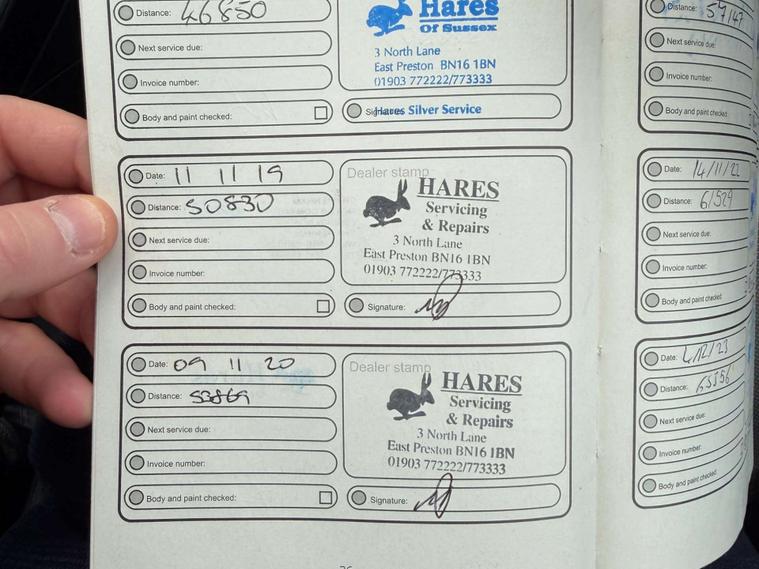 Distance: 46850
Next service due:
Invoice number:
Body and paint checked:
Hares
Of Sussex
3 North Lane
East Preston BN16 1BN
01903 772222/773333
Hares Silver Service
Date: 11 11 19
Distance: 50830
Next service due:
Invoice number:
Body and paint checked:
Dealer stamp
HARES
Servicing
& Repairs
3 North Lane
East Preston BN16 1BN
01903 772222/773333
Signature:
Date: 09 11 20
Distance: 53869
Next service due:
Invoice number:
Body and paint checked:
Dealer stamp
HARES
Servicing
& Repairs
3 North Lane
East Preston BN16 1BN
01903 772222/773333
Signature:
Distance: 59147
Next service due:
Invoice number:
Body and paint checked:
Date: 14/11/22
Distance: 61529
Next service due:
Invoice number:
Body and paint checked
Date: 4/12/23
Distance: 65556
Next service due:
Invoice number:
Body and paint checked: